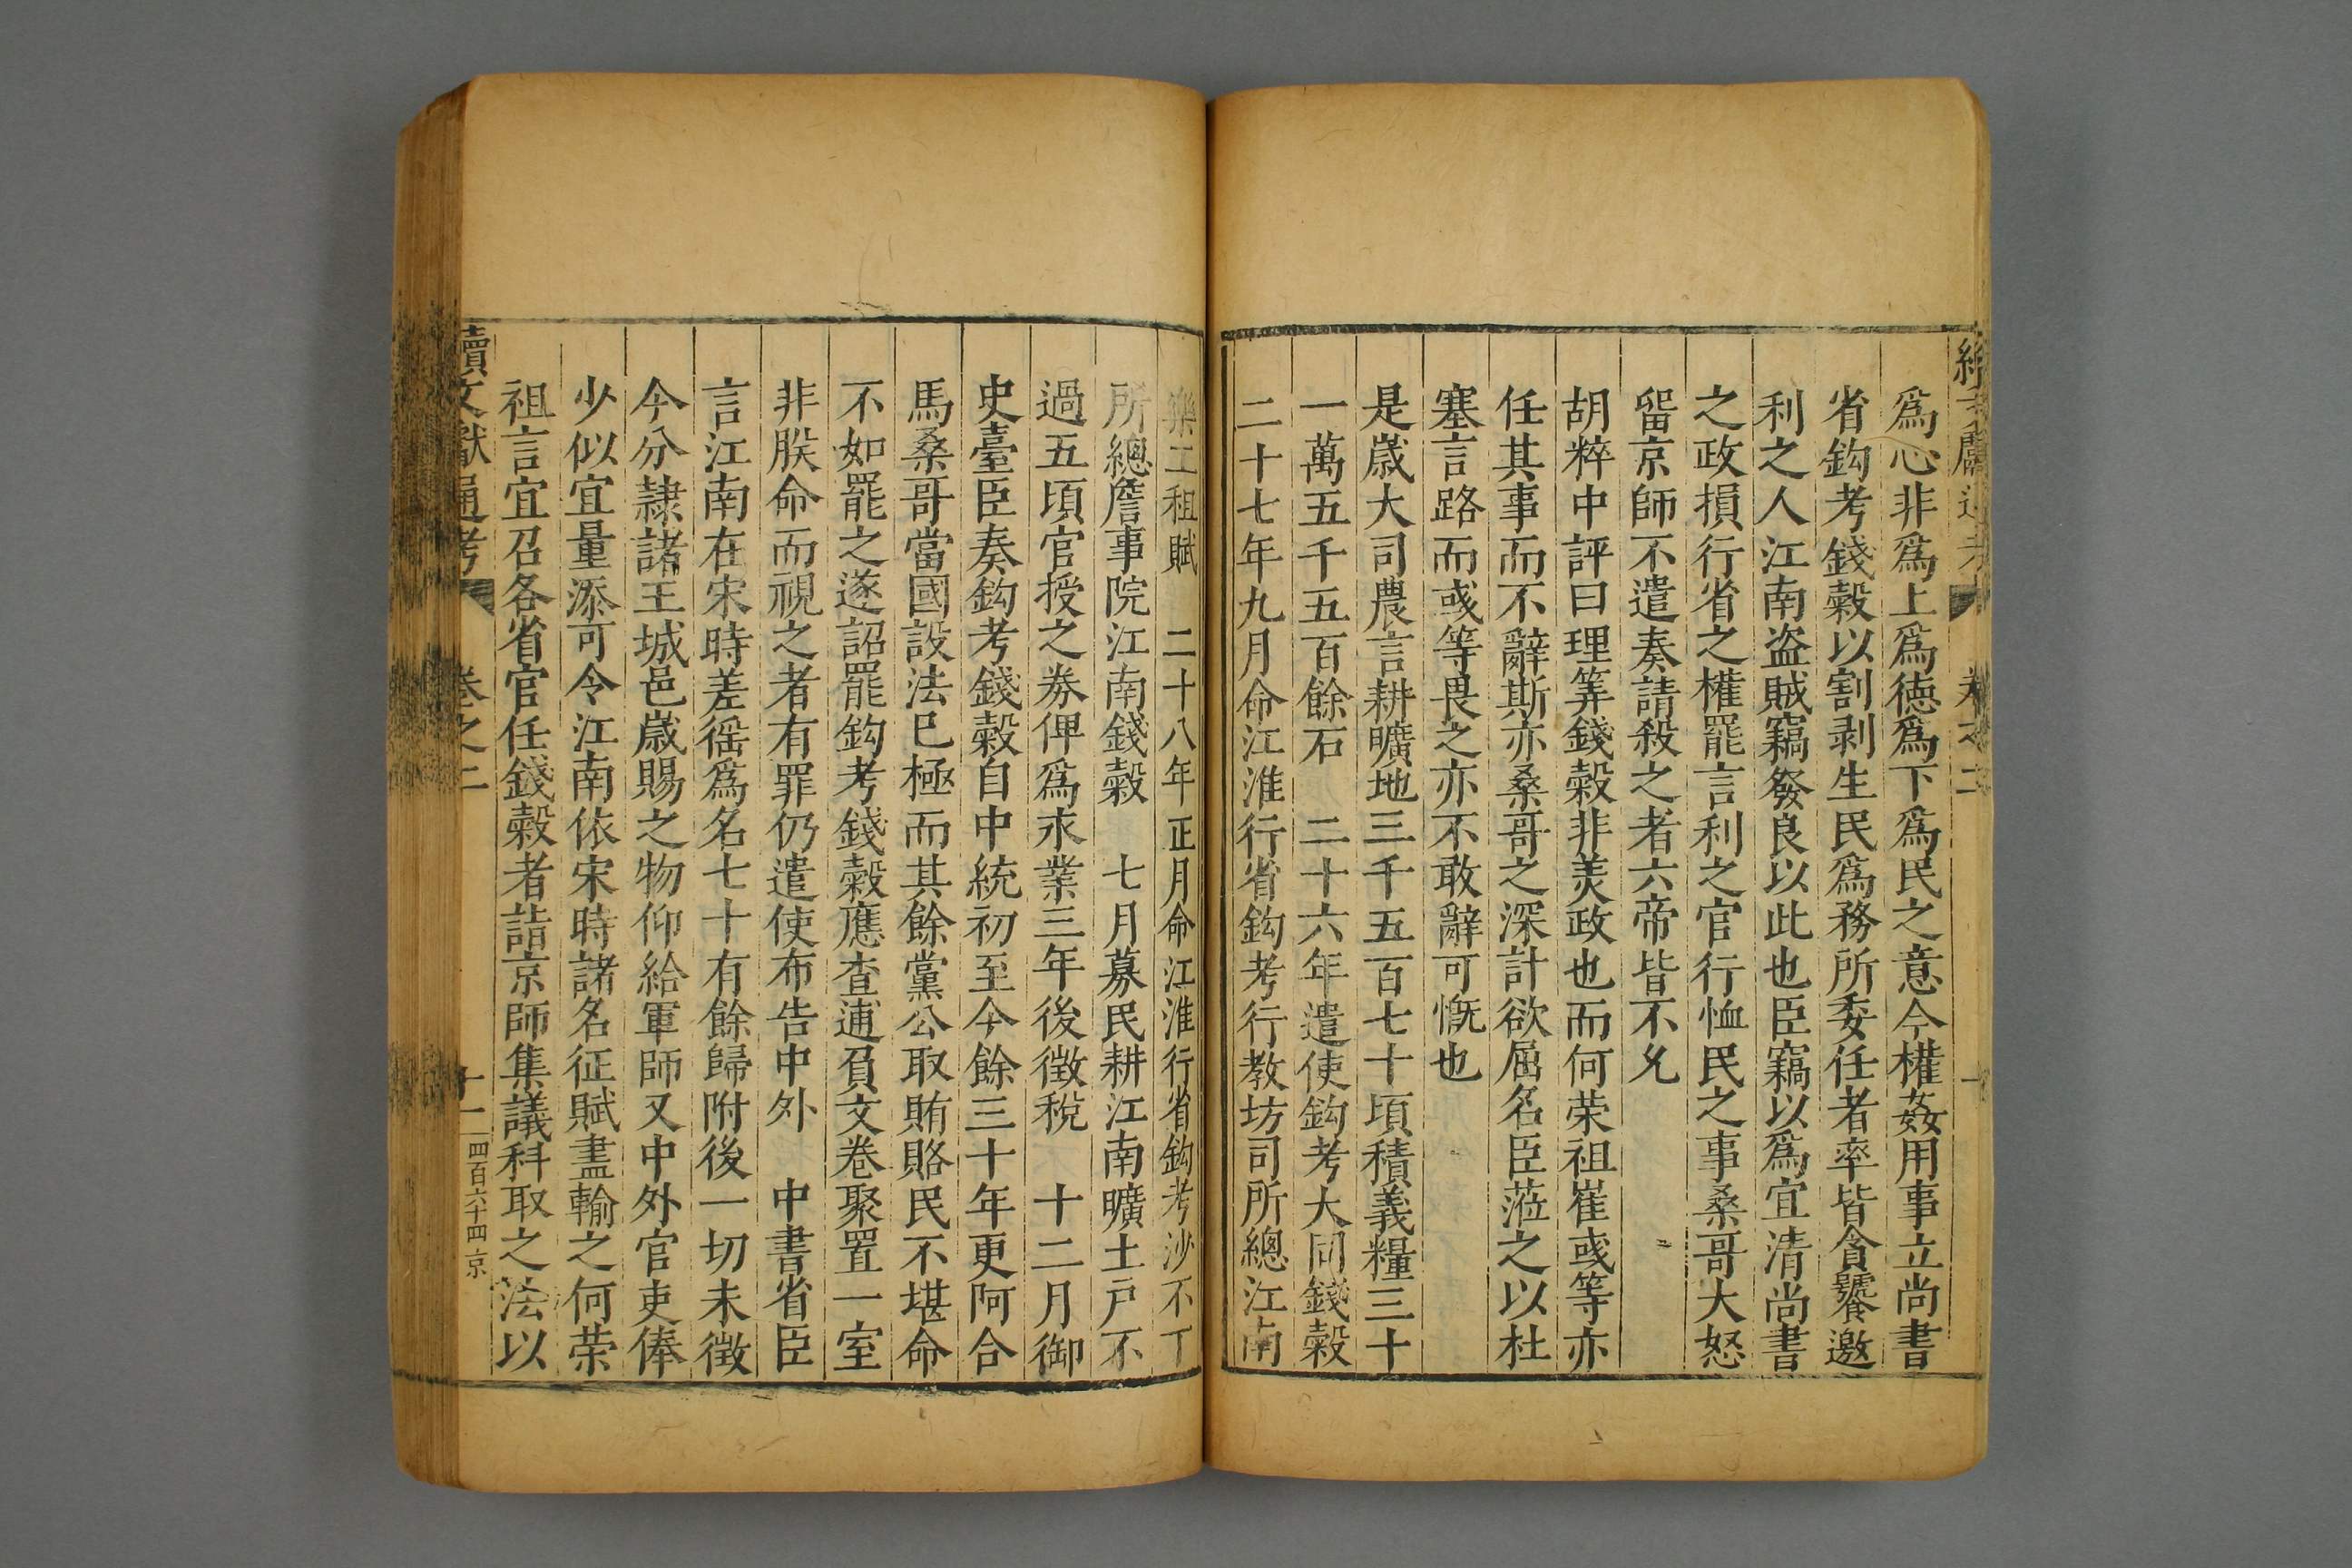 續文獻通考 卷之二
爲心非爲上爲德爲下爲民之意今權姦用事立尚書
省鈎考錢穀以割剥生民爲務所委任者率皆貪饕邀
利之人江南盗賊竊發良以此也臣竊以爲宜清尚書
之政損行省之權罷言利之官行恤民之事桑哥大怒
留京師不遣奏請殺之者六帝皆不允
胡粹中評曰理筭錢穀非美政也而何荣祖崔彧等亦
任其事而不辭斯亦桑哥之深計欲屈名臣蒞之以杜
塞言路而彧等畏之亦不敢辭可慨也
是歳大司農言耕曠地三千五百七十頃積義糧三十
一萬五千五百餘石 二十六年遣使鈎考大同錢穀
二十七年九月命江淮行省鈎考行教坊司所總江南
樂工租賦 二十八年正月命江淮行省鈎考沙不丁
所總詹事院江南錢穀 七月募民耕江南曠土戸不
過五頃官授之券俾爲永業三年後徵稅 十二月御
史臺臣奏鈎考錢穀自中統初至今餘三十年更阿合
馬桑哥當國設法已極而其餘黨公取賄賂民不堪命
不如罷之遂詔罷鈎考錢穀應查逋負文卷聚置一室
非朕命而視之者有罪仍遣使布告中外 中書省臣
言江南在宋時差徭爲名七十有餘歸附後一切未徵
今分隸諸王城邑歳賜之物仰給軍師又中外官吏俸
少似宜量添可令江南依宋時諸名征賦盡輸之何荣
祖言宜召各省官任錢穀者詣京師集議科取之法以
續文獻通考 卷之二 十二 四百六十四 京